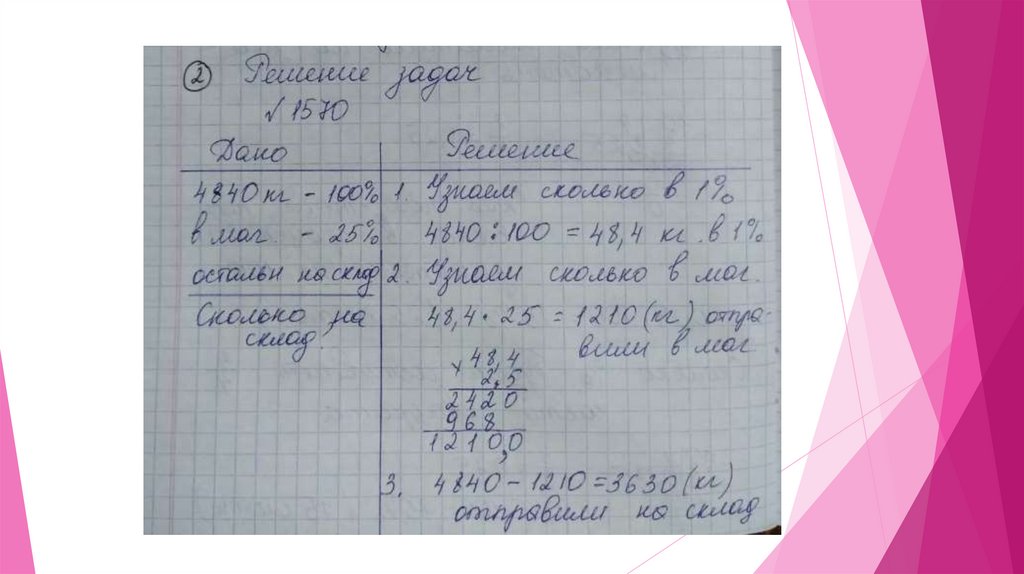 ② Решение задач
№ 1570
Дано
Решение
4840 кг - 100%
в маг. - 25%
остальн на склад
Сколько на
склад.
1. Узнаем сколько в 1%
4840 : 100 = 48,4 кг. в 1%
2. Узнаем сколько в маг.
48,4 · 25 = 1210 (кг) отпра-
вили в маг.
× 48,4
2,5
2420
968
1210,0
3. 4840 - 1210 = 3630 (кг)
отправили на склад